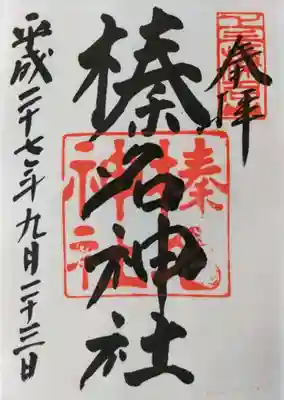 奉拝
榛名神社
平成二十七年九月二十三日
榛名
神社